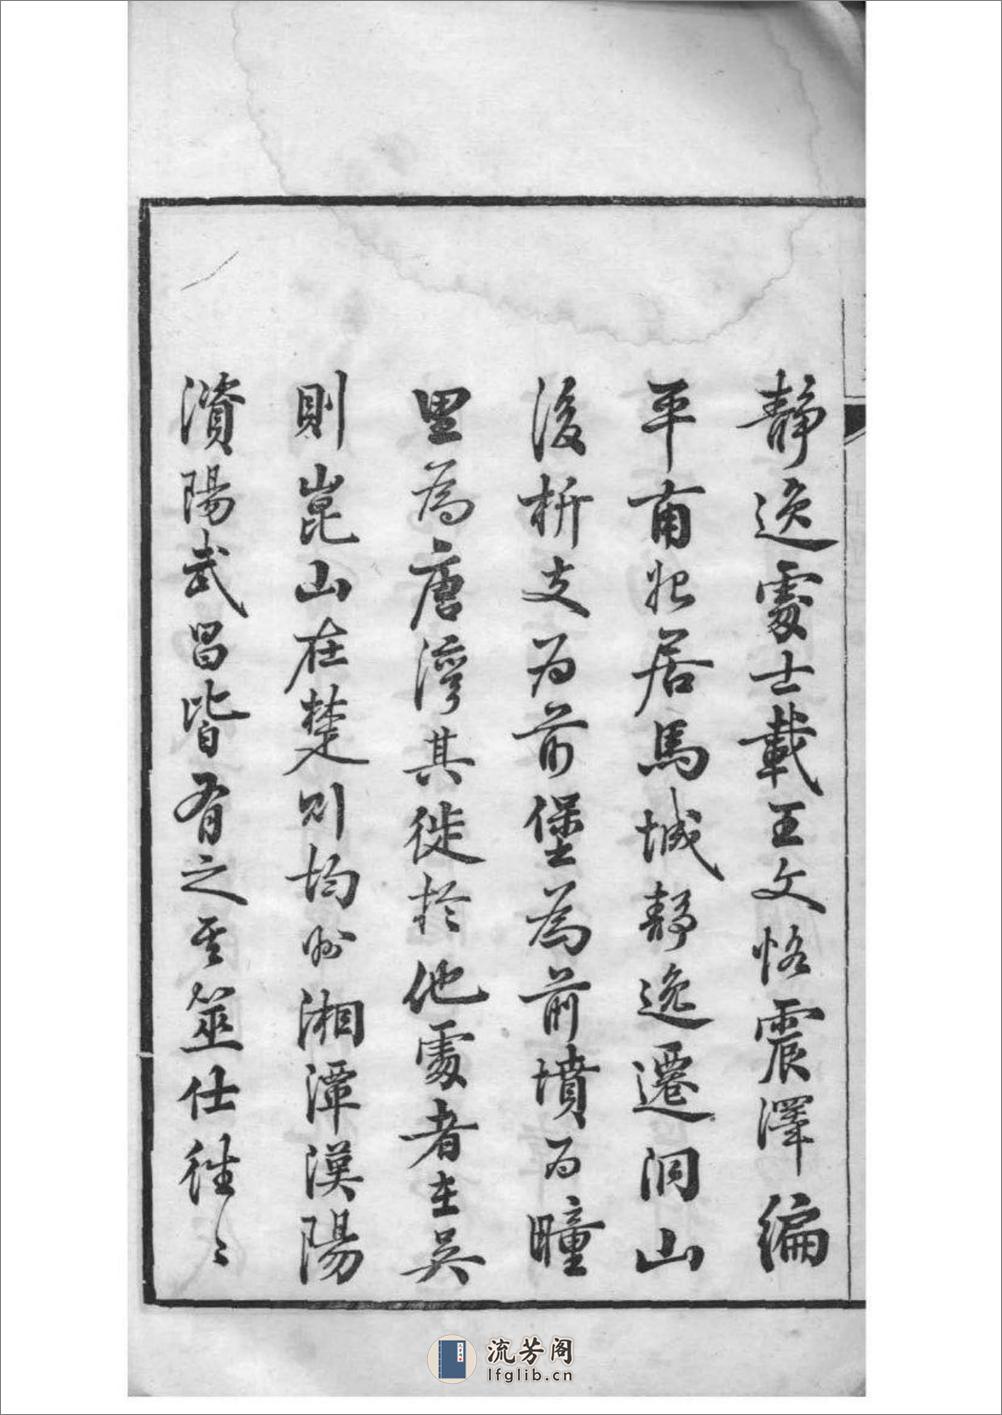 靜逸處士載王文恪震澤編
平甫始居馬城靜逸遷洞山
後析支为前堡為前墳为疃
里為唐灣其徙於他處者在吳
則崑山在楚则均州湘潭漢陽
濆陽武昌皆有之其筮仕往〻
流芳阁
lfglib.cn